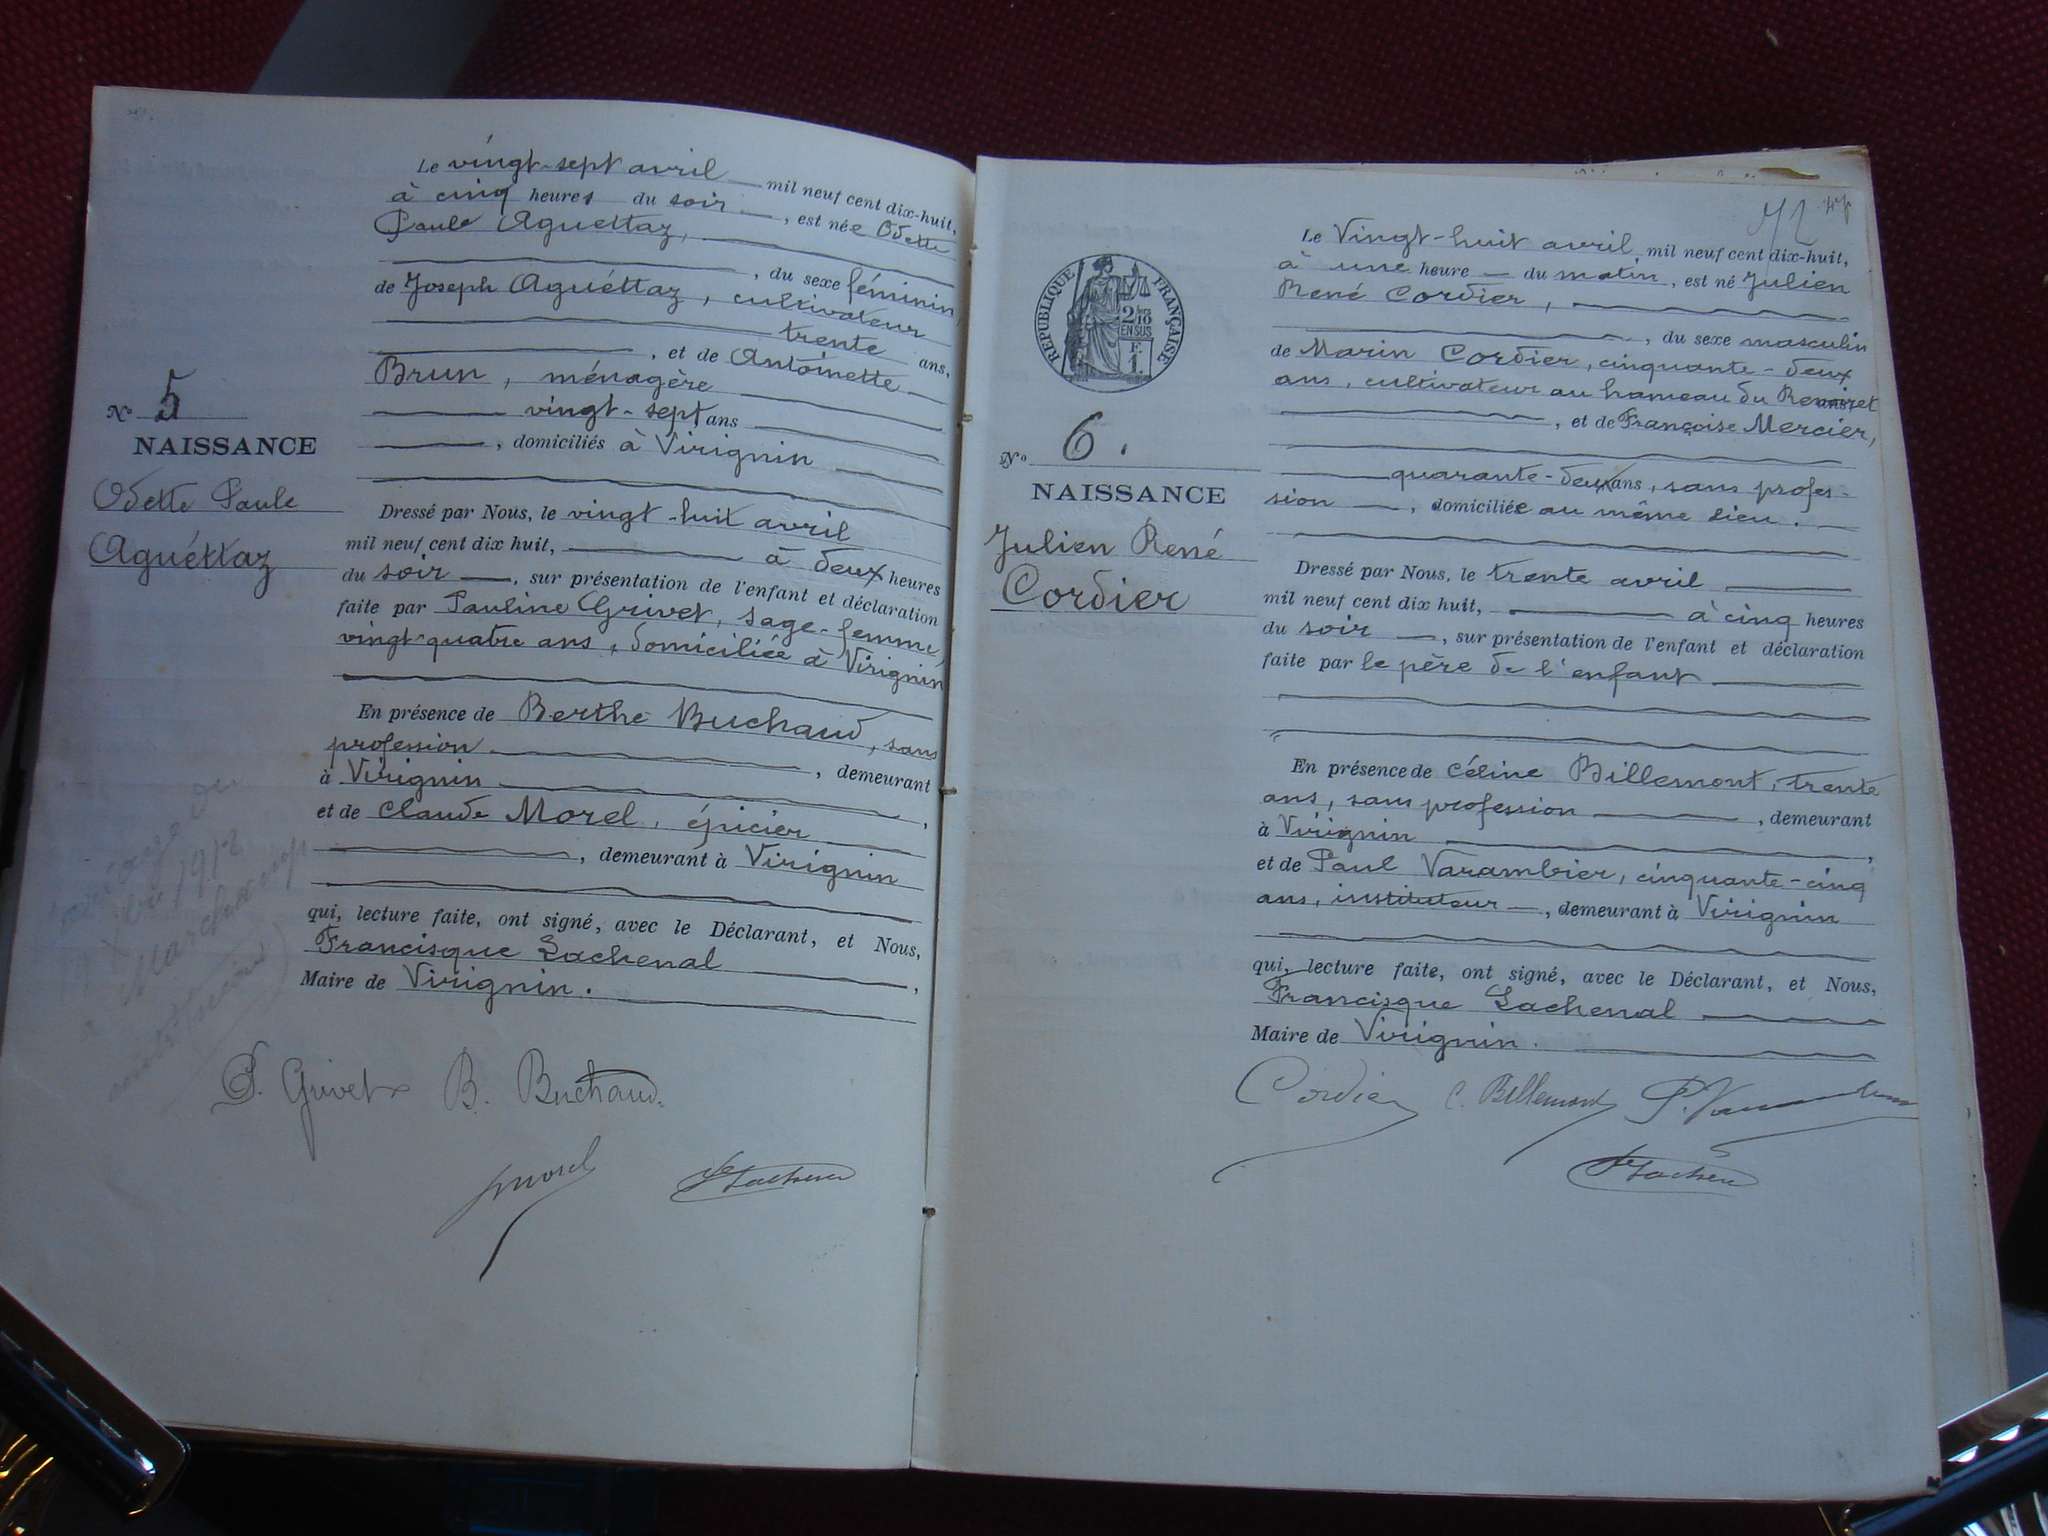 Le vingt-sept avril mil neuf cent dix-huit,
à cinq heures du soir, est née Odette
Paule Aguettaz,
, du sexe féminin,
de Joseph Aguéttaz, cultivateur
trente ans,
, et de Antoinette
Brun, ménagère
vingt-sept ans
, domiciliés à Virignin
Dressé par Nous, le vingt-huit avril
mil neuf cent dix huit, à deux heures
du soir, sur présentation de l'enfant et déclaration
faite par Pauline Grivet, sage-femme,
vingt-quatre ans, domiciliée à Virignin
En présence de Berthe Buchaud, sans
profession, demeurant
à Virignin,
et de Claude Morel, épicier
, demeurant à Virignin
qui, lecture faite, ont signé, avec le Déclarant, et Nous,
Francisque Lachenal,
Maire de Virignin.
P. Grivet B. Buchaud
Morel
No 5
NAISSANCE
Odette Paule
Aguéttaz
mariage du
1912
Marchamp
RÉPUBLIQUE FRANÇAISE
2/10
EN SUS
F.
1.
No 6.
NAISSANCE
Julien René
Cordier
Le Vingt-huit avril mil neuf cent dix-huit,
à une heure du matin, est né Julien
René Cordier,
, du sexe masculin
de Marin Cordier, cinquante-deux
ans, cultivateur au hameau du
, et de Françoise Mercier,
quarante-deux ans, sans profes-
sion, domiciliée au même lieu.
Dressé par Nous, le trente avril
mil neuf cent dix huit, à cinq heures
du soir, sur présentation de l'enfant et déclaration
faite par le père de l'enfant
En présence de Céline Billemont, trente
ans, sans profession, demeurant
à Virignin,
et de Paul Varambier, cinquante-cinq
ans, instituteur, demeurant à Virignin
qui, lecture faite, ont signé, avec le Déclarant, et Nous,
Francisque Lachenal
Maire de Virignin.
Cordier C. Billemont